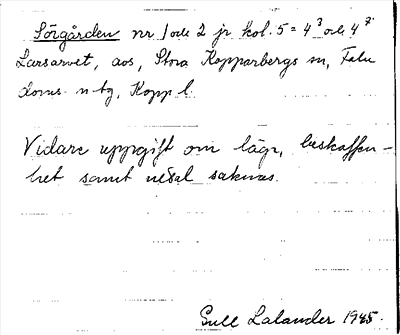 Sörgården nr 1 och 2 jr kol. 5 = 4³ och 4⁷.
Larsarvet, aos, Stora Kopparbergs sn, Falu
doms. n tg, Kopp l.
Vidare uppgift om läge, beskaffen-
het samt nedal saknas.
Gull Lalander 1945.